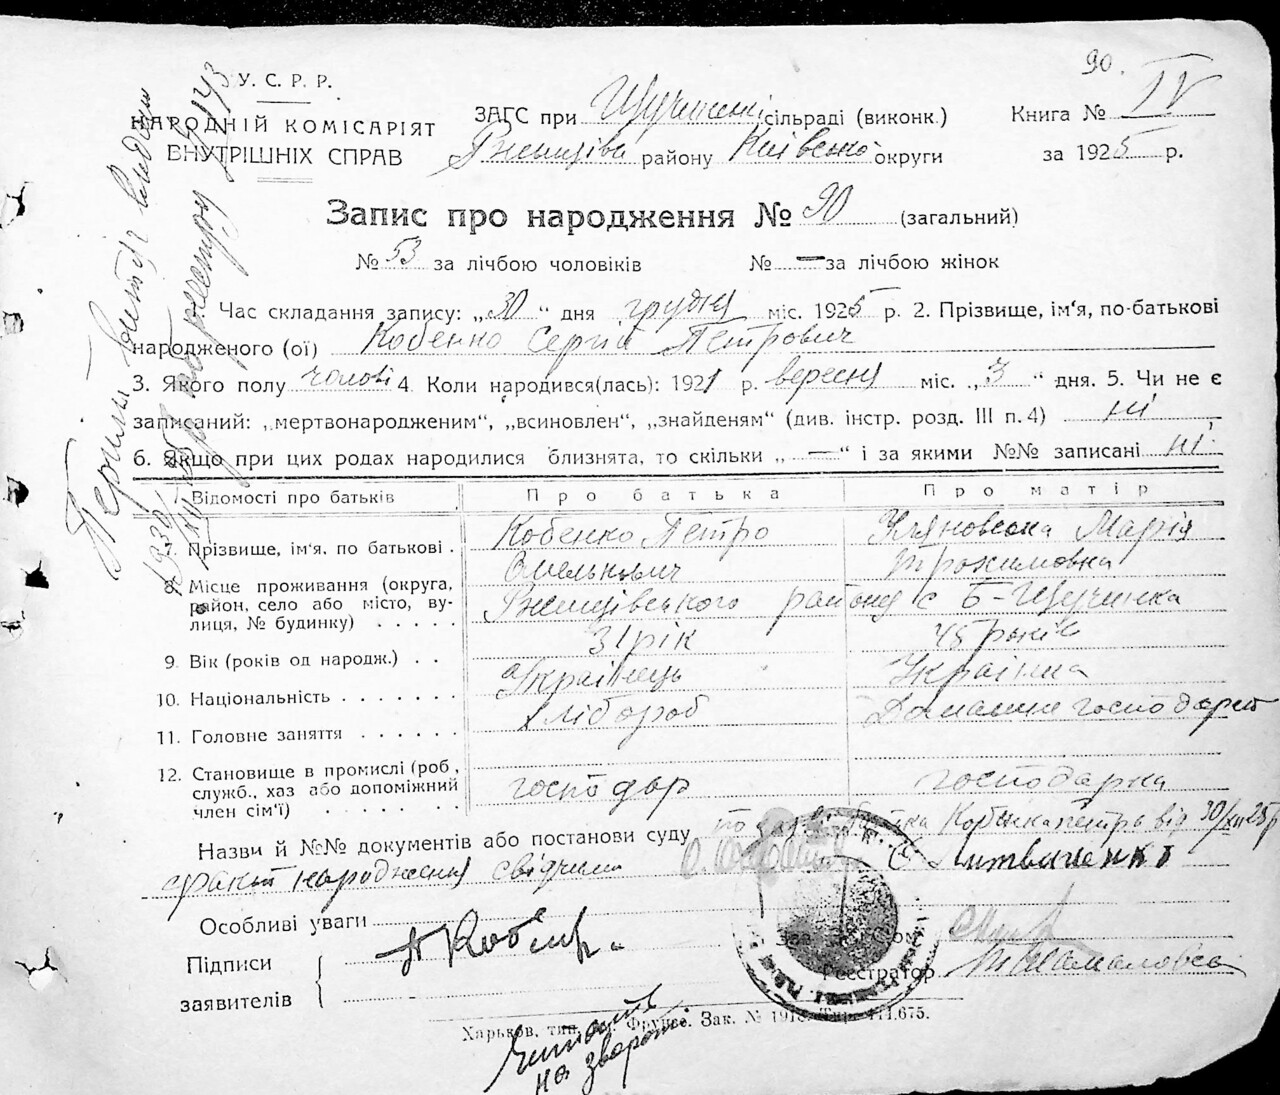 90.
У. С. Р. Р.
НАРОДНІЙ КОМІСАРІЯТ
ВНУТРІШНІХ СПРАВ
ЗАГС при сільраді (виконк.)
району Київсько округи
Книга № IV
за 1925 р.
Запис про народження № 90 (загальний)
№ 53 за лічбою чоловіків № — за лічбою жінок
Час складання запису: „30“ дня грудня міс. 1925 р. 2. Прізвище, ім'я, по-батькові
народженого (ої) Кобенко Сергій Петрович
3. Якого полу чолові 4. Коли народився(лась): 1921 р. вересня міс. „3“ дня. 5. Чи не є
записаний: „мертвонародженим“, „всиновлен“, „знайденям“ (див. інстр. розд. III п. 4) ні
6. Якщо при цих родах народилися близнята, то скільки „—“ і за якими №№ записані ні
Відомості про батьків Про батька Про матір
7. Прізвище, ім'я, по батькові . Кобенко Петро Омелькович Уляновська Марія Трохимовна
8. Місце проживання (округа, район, село або місто, вулиця, № будинку) . . . . . Ржищівського району с Б-Щучинка
9. Вік (років од народж.) . . 31 рік 45 років
10. Національність . . . . . . . Українець Українка
11. Головне заняття . . . . . . Хлібороб господарст
12. Становище в промислі (роб., служб., хаз або допоміжний член сім'ї) . . . . . . . господар господарка
Назви й №№ документів або постанови суду по заяві батька Кобенка Петра від 30/XII 25 р
факт народження свідчили Литваченко
Особливі уваги
Підписи
заявителів
Зав.
Реєстратор
Харьков, тип. Фрунзе. Зак. № 191
.675.
на звороті
Перший